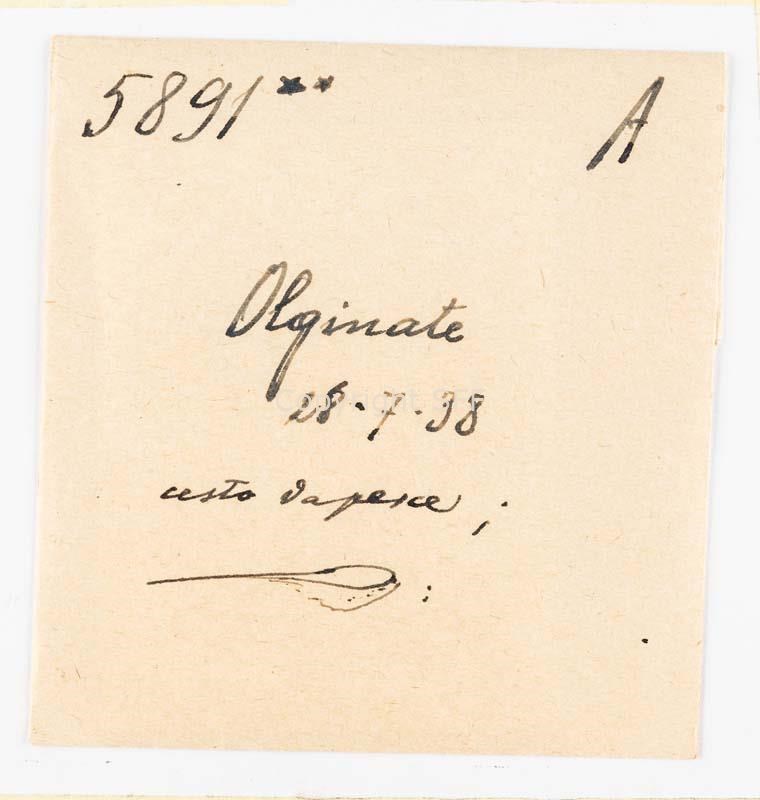 5891** A
Olginate
28·7·38
cesto da pesce ;
: